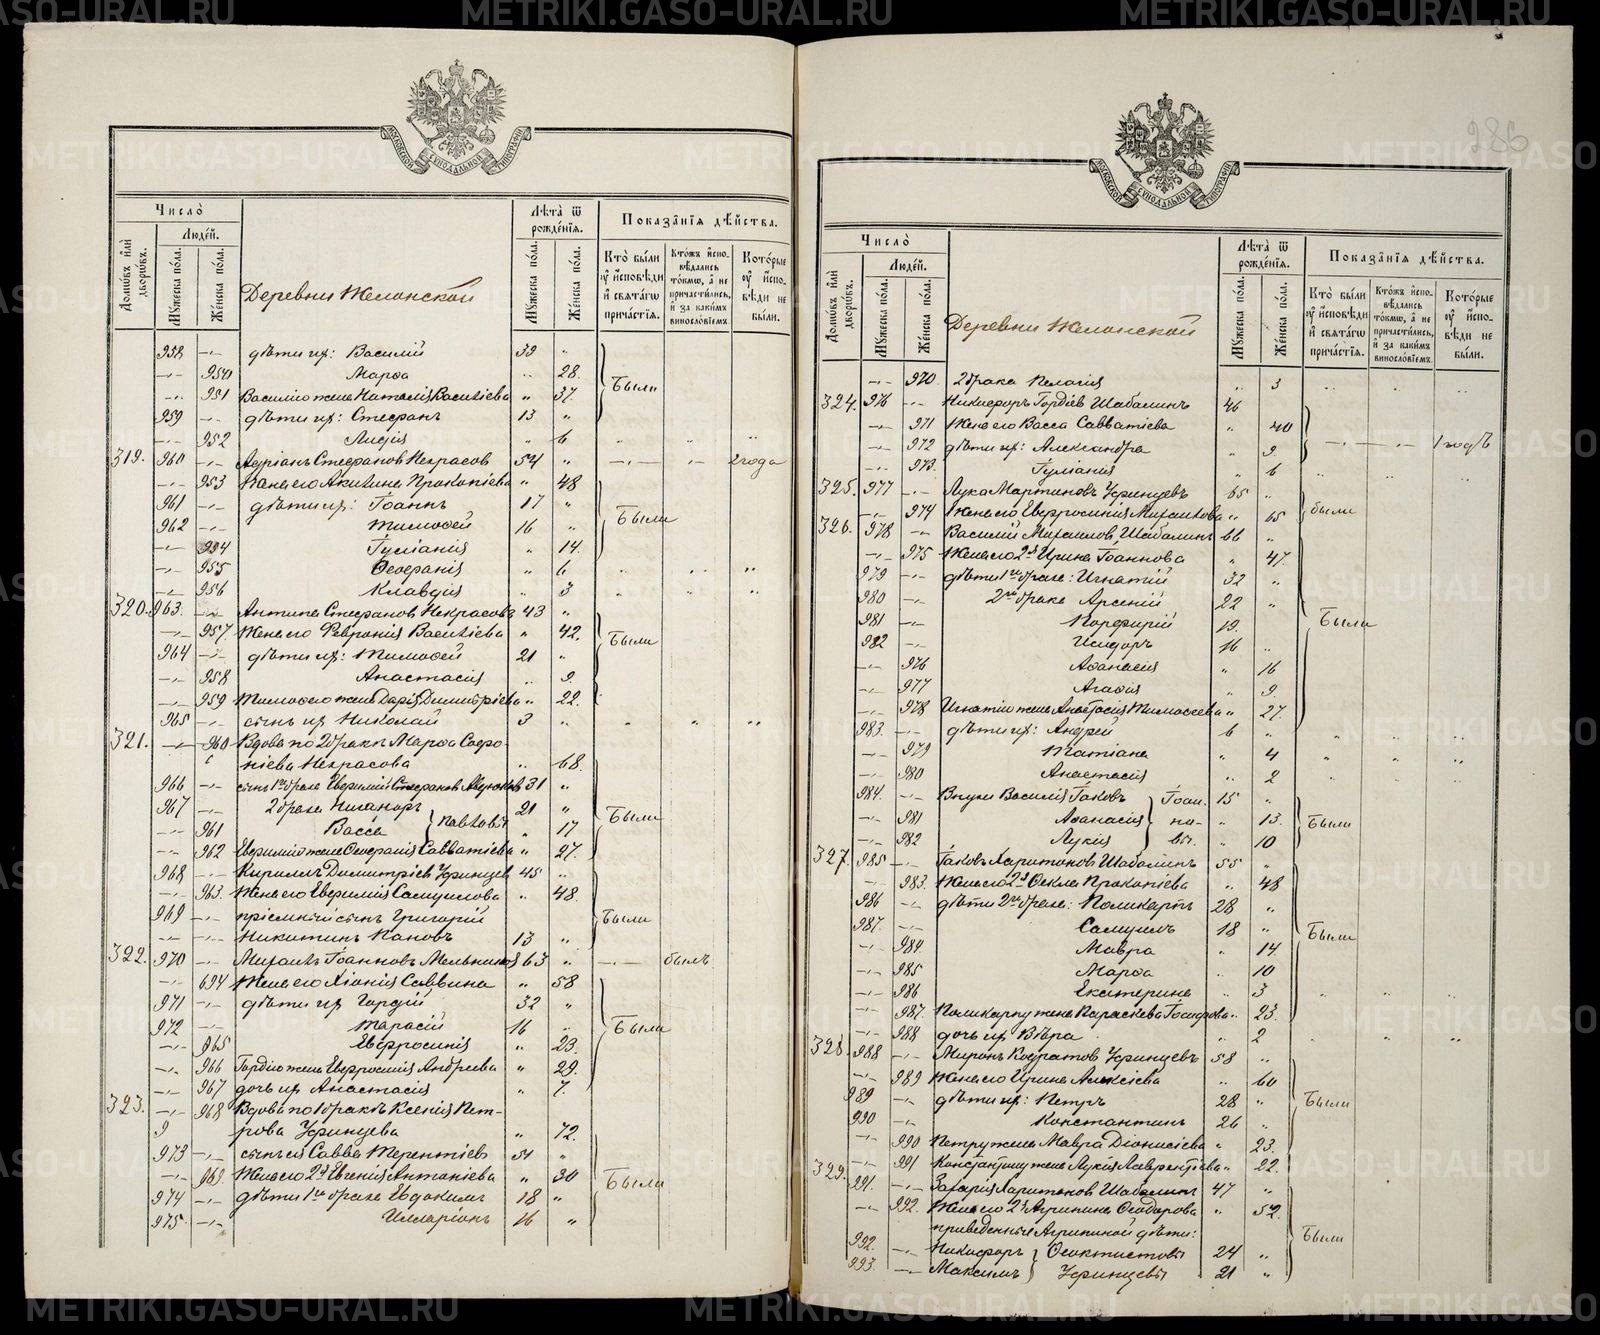 METRIKI.GASO-URAL.RU
МОСКОВСКОЙ СѴНОДАЛЬНОЙ ТИПОГРАФІИ
Число̀
Люде́й.
Домѡ́въ и҆лѝ дворѡ́въ.
Мꙋ́жеска по́ла.
Же́нска по́ла.
Деревни Желонской
Лѣ́та ѿ рожде́нїѧ.
Мꙋ́жеска по́ла.
Же́нска по́ла.
Показа̑нїѧ дѣ́йства.
Кто̀ бы́ли ᲂу҆ и҆́сповѣди и҆ свѧта́гѡ прича́стїѧ.
Кто́жъ и҆спо- вѣ́дались то́кмѡ, а҆ не причасти́лись, и҆ за каки́мъ винослові́емъ.
Кото́рые ᲂу҆ и҆́спо- вѣди не бы́ли.
958 -„- дѣти ихъ: Василій 39 „
-„- 950 Марѳа „ 28.
-„- 951 Василію жена Наталія Васильева „ 37. Были
959 -„- дѣти ихъ: Стефанъ 13 „
-„- 952 Лидія „ 6 „ „ „
319. 960 -„- Адріанъ Стефановъ Некрасовъ 54 „ -„- „ 2 года
-„- 953 Жена его Акилина Прокопіева „ 48
961 -„- дѣти ихъ: Іоаннъ 17 „
962 -„- Тимоѳей 16 „ Были
-„- 954 Іуліанія „ 14.
-„- 955 Ѳеофанія „ 6 „ „ „
-„- 956 Клавдія „ 3 „ „ „
320. 963. -„- Антипа Стефановъ Некрасовъ 43 „
-„- 957. Жена его Февронія Васильева „ 42. Были
964 -„- дѣти ихъ: Тимоѳей 21 „
-„- 958 Анастасія „ 9.
-„- 959 Тимоѳею жена Дарія Димитріева „ 22.
965 -„- сынъ ихъ Николай 3 „ „ „ „
321. -„- 960 Вдова по 2 бракѣ Марѳа Софро-
ніева Некрасова „ 68.
966 -„- сынъ 1го брака Евфимій Стефановъ 31 „
967 -„- 2 брака Никаноръ 21 „
-„- 961 Васса } Павловы „ 17 Были
-„- 962 Евфимію жена Ѳеофанія Савватіева „ 27.
968 -„- Кириллъ Димитріев Уфинцев 45 „
-„- 963. Жена его Евфимія Самуилова „ 48.
969 -„- пріемный сынъ Григорій Были
-„- -„- Никитинъ Пановъ 13 „
322. 970 -„- Михаилъ Іоанновъ Мельников 63 „ -„- былъ
-„- 694 Жена его Хіонія Саввина „ 58
971 -„- дѣти ихъ Гордій 32 „
972 -„- Тарасій 16 „ Были
-„- 965 Евфросинія „ 23.
-„- 966 Гордію жена Евфросинія Андреева „ 29.
-„- 967 дочь ихъ Анастасія „ 7.
323. -„- 968 Вдова по 1 бракѣ Ксенія Пет-
9 рова Уфинцева „ 72.
973 -„- сынъ ея Савва Терентіевъ 51 „
-„- 969. Жена его 2я Евгенія Антоніева „ 30 Были
974 -„- дѣти 1го брака Евдокимъ 18 „
975 -„- Илларіонъ 16 „
286
МОСКОВСКОЙ СѴНОДАЛЬНОЙ ТИПОГРАФІИ
Число̀
Люде́й.
Домѡ́въ и҆лѝ дворѡ́въ.
Мꙋ́жеска по́ла.
Же́нска по́ла.
Деревни Желонской
Лѣ́та ѿ рожде́нїѧ.
Мꙋ́жеска по́ла.
Же́нска по́ла.
Показа̑нїѧ дѣ́йства.
Кто̀ бы́ли ᲂу҆ и҆́сповѣди и҆ свѧта́гѡ прича́стїѧ.
Кто́жъ и҆спо- вѣ́дались то́кмѡ, а҆ не причасти́лись, и҆ за каки́мъ винослові́емъ.
Кото́рые ᲂу҆ и҆́спо- вѣди не бы́ли.
-„- 970. 2 брака Пелагія „ 3 „ „ „
324. 976 -„- Никифоръ Гордіев Шабалинъ 46
-„- 971 Жена его Васса Савватіева „ 40
-„- 972 дѣти ихъ: Александра „ 9 -„- -„- 1 годъ
-„- 973. Іуліанія „ 6 „ „ „
325. 977 -„- Лука Мартиновъ Уфинцевъ 65 „
-„- 974 Жена его Евфросинія Михаилова „ 65 были
326. 978 -„- Василій Михаиловъ Шабалинъ 66 „
-„- 975 Жена его 2я Ирина Іоаннова „ 47.
979 -„- дѣти 1го брака: Игнатій 32 „
980 -„- 2го брака Арсеній 22 „
981 -„- Порфирій 19. Были
982 -„- Исидоръ 16 „
-„- 976 Аѳанасія „ 16
-„- 977 Агаѳія „ 9.
-„- 978 Игнатію жена Анастасія Тимоѳеева „ 27.
983. -„- дѣти ихъ: Андрей 6 „ „ „ „
-„- 979 Татіана „ 4 „ „ „
-„- 980 Анастасія „ 2 „ „ „
984. -„- Внуки Василія Іаковъ } Іоан- 15 „
-„- 981 Аѳанасія } но- „ 13. Были
-„- 982 Лукія } вы. „ 10
327. 985 -„- Іаковъ Харитоновъ Шабалинъ 55 „
-„- 983. Жена его 2я Ѳекла Прокопіева „ 48
986 -„- дѣти 2го брака: Поликарпъ 28 „
987. -„- Самуилъ 18 „ Были
-„- 984 Мавра „ 14.
-„- 985 Марѳа „ 10
-„- 986 Екатерина „ 3 „ „ „
-„- 987. Поликарпу жена Параскева „ 23.
-„- 988 дочь ихъ Вѣра „ 2 „ „ „
328. 988 -„- Миронъ Кодратовъ Уфинцевъ 58 „
-„- 989 Жена его Ирина Алексіева „ 60
989 -„- дѣти ихъ: Петръ 28 „ Были
990 -„- Константинъ 26 „
-„- 990 Петру жена Мавра Діонисіева „ 23.
-„- 991 Константину жена Лукія Лаврентіева „ 22.
329. 991. -„- Захарія Харитоновъ Шабалинъ 47 „
-„- 992. Жена его 2я Агрипина Ѳеодорова „ 52.
приведенные Агрипиной дѣти: Были
992. -„- Никифоръ } Ѳеоктистовы 24 „
993. -„- Максимъ } Уфинцевы 21 „